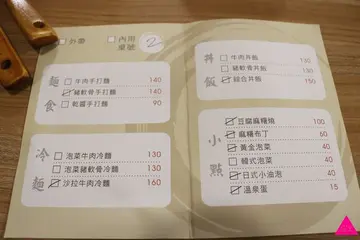 外帶
內用
桌號 2
麵食
牛肉手打麵 140
豬軟骨手打麵 140
乾醬手打麵 90
冷麵
泡菜牛肉冷麵 130
泡菜豬軟骨冷麵 130
沙拉牛肉冷麵 160
丼飯
牛肉丼飯 130
豬軟骨丼飯 130
綜合丼飯 150
小點
豆腐麻糬燒 100
麻糬布丁 60
黃金泡菜 40
韓式泡菜 40
日式小油泡 40
溫泉蛋 15